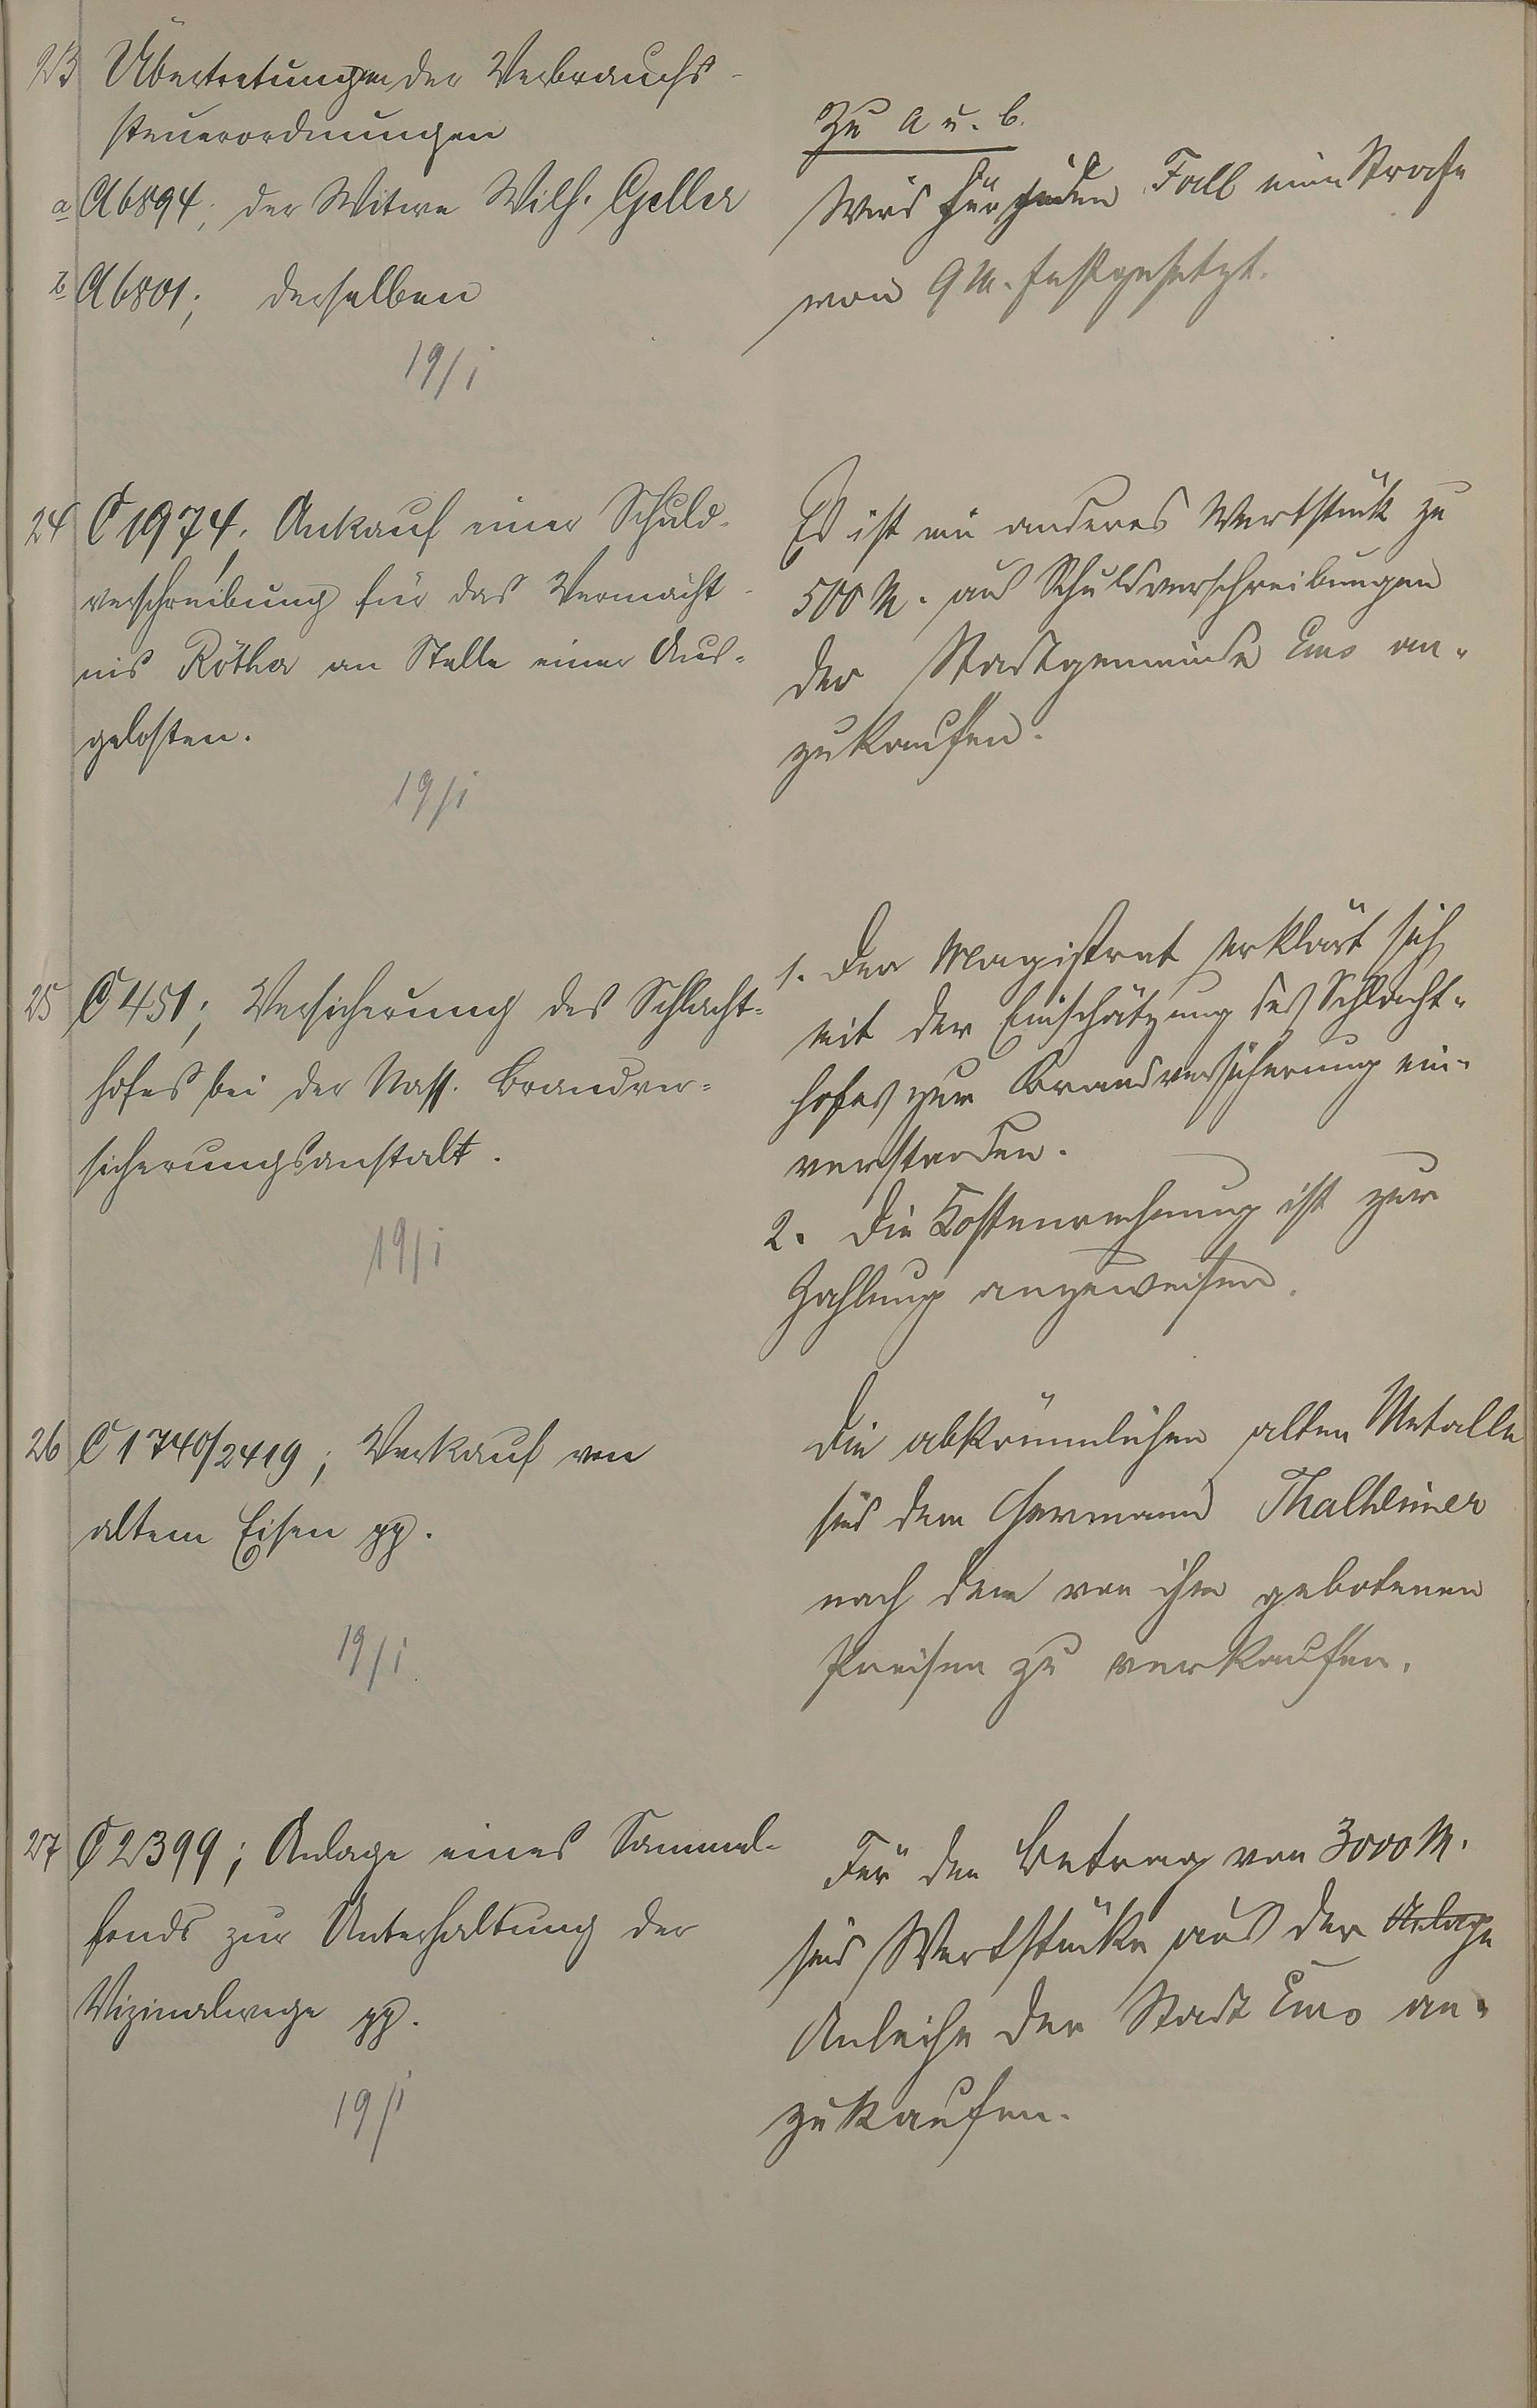 23 Übertretungen der Verbrauchs-
steuerordnungen
a A 6894; der Witwe Wilh. Geller
b A 6801; derselben
19/1
Zu a u. b.
Wird für jeden Fall eine Strafe
von 9 M. festgesetzt.
24 C 1974; Ankauf einer Schuld-
verschreibung für das Vermächt-
nis Röther an Stelle einer Aus-
gelosten.
19/1
Es ist ein anderes Wertstück zu
500 M. aus Schuldverschreibungen
der Stadtgemeinde Ems an-
zukaufen.
25 C 451; Versicherung des Schlacht-
hofes bei der Nass. Brandver-
sicherungsanstalt.
19/1
1. Der Magistrat erklärt sich
mit der Einschätzung des Schlacht-
hofes zur Brandversicherung ein-
verstanden.
2. Die Kostenrechnung ist zur
Zahlung anzuweisen.
26 C 1740/2419; Verkauf von
altem Eisen pp.
19/1
Die abkömmlichen alten Metalle
sind dem Hermann Thalheimer
nach den von ihm gebotenen
Preisen zu verkaufen.
27 C 2399; Anlage eines Sammel-
fonds zur Unterhaltung der
Vizinalwege pp.
19/1
Für den Betrag von 3000 M.
sind Wertstücke aus der Anlage
Anleihe der Stadt Ems an-
zukaufen.